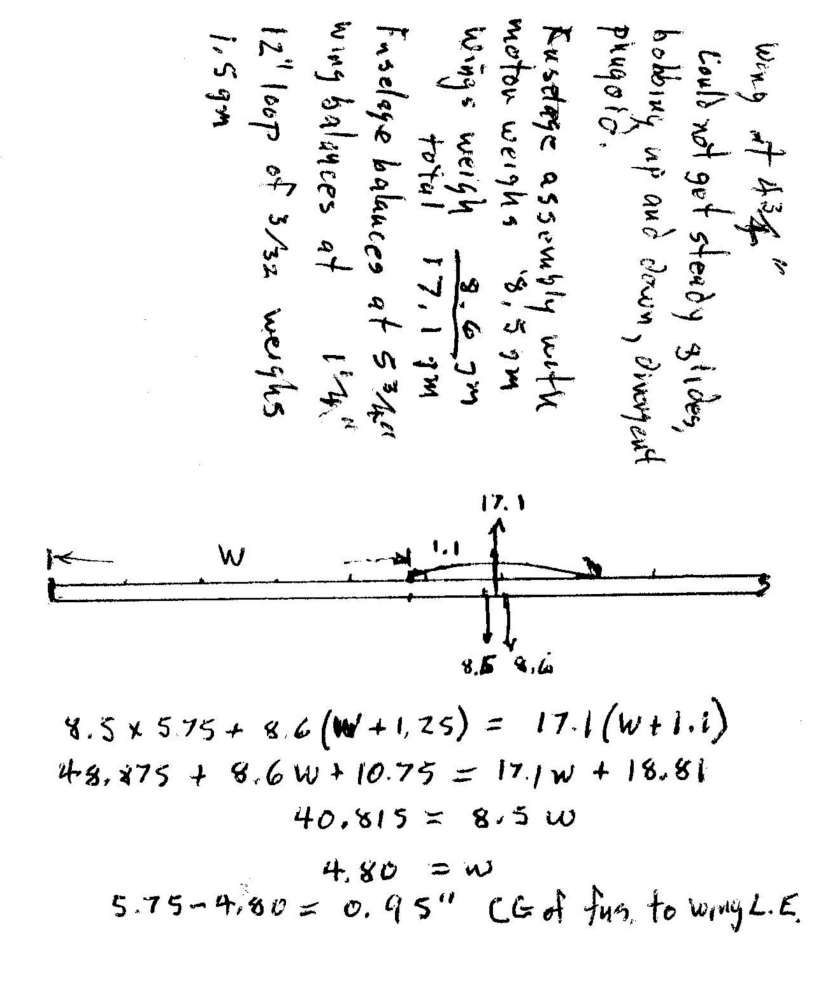 Wing at 4 3/4"
Could not get steady glides,
bobbing up and down, divergent
phugoid.
Fuselage assembly with
motor weighs 8.5 gm
wings weigh 8.6 gm
total 17.1 gm
Fuselage balances at 5 3/4"
wing balances at 1 1/4"
12" loop of 3/32 weighs
1.5 gm
17.1
W 1.1
8.5 8.6
8.5 x 5.75 + 8.6 (W + 1.25) = 17.1 (W + 1.1)
48.875 + 8.6 W + 10.75 = 17.1 W + 18.81
40.815 = 8.5 W
4.80 = W
5.75 - 4.80 = 0.95" CG of fus. to wing L.E.